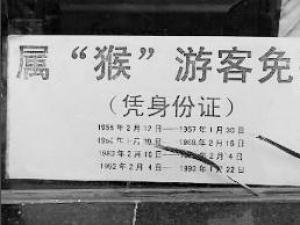 属“猴”游客免
（凭身份证）
1956年2月12日——1957年1月30日
1969年2月16日
1980年2月16日 年2月4日
1992年2月4日——1993年1月22日